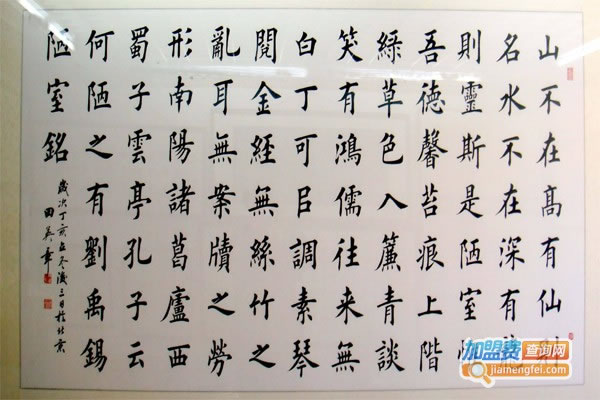 山不在高有仙
名水不在深有
則靈斯是陋室惟
吾德馨苔痕上階
綠草色入簾青談
笑有鴻儒往來無
白丁可㠯調素琴
閱金經無絲竹之
亂耳無案牘之勞
形南陽諸葛廬西
蜀子雲亭孔子云
何陋之有劉禹錫
陋室銘
歲次丁亥孟冬 三日於北京
田英章
加盟费查询网
jiamengfei.com